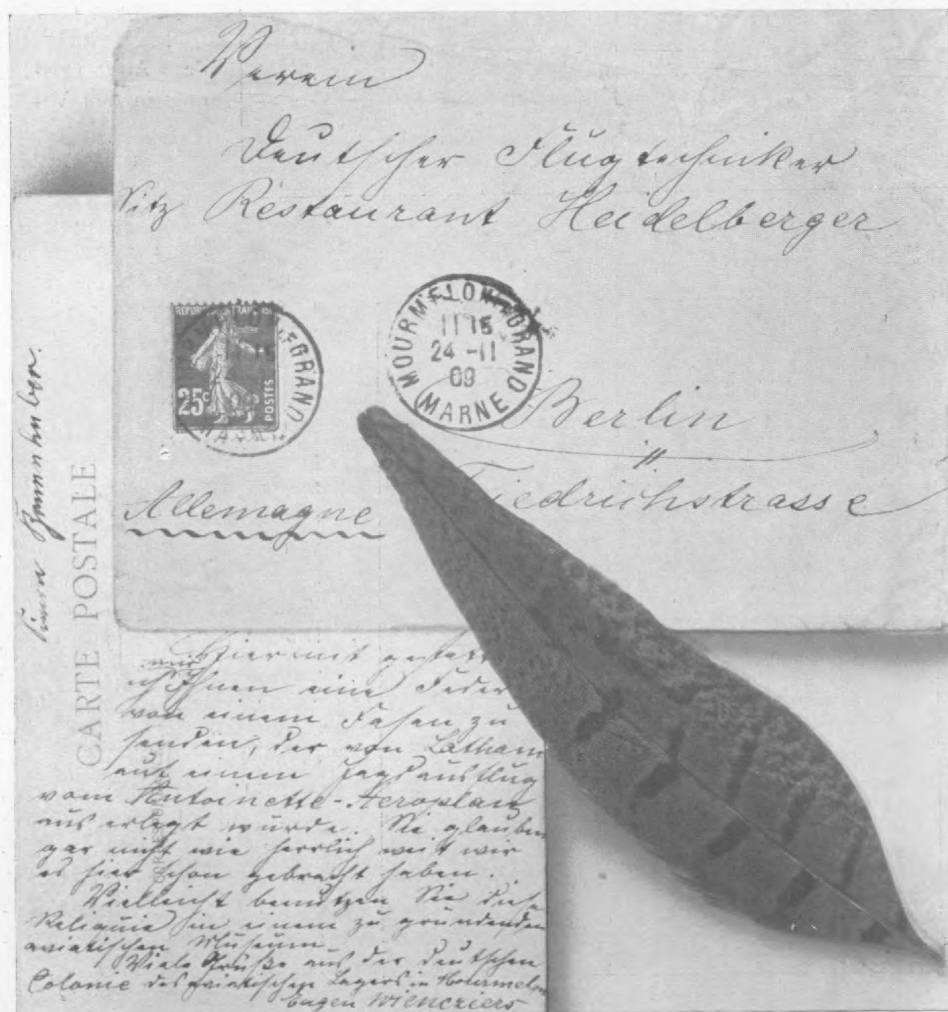 Verein
Deutscher Flugtechniker
Sitz Restaurant Heidelberger
REPUBLIQUE FRANÇAISE
25c
POSTES
LE GRAND
MOURMELON-LE-GRAND
11 15
24 -11
09
(MARNE)
Berlin
Friedrichstrasse
Allemagne
CARTE POSTALE
Hiermit gestatte
ich Ihnen eine Feder
von einem Fasan zu
senden, der von Latham
auf einem Jagdausflug
vom Antoinette-Aeroplan
aus erlegt wurde. Sie glauben
gar nicht wie herrlich weit wir
es hier schon gebracht haben.
Vielleicht benutzen Sie diese
Reliquie in einem zu gründenden
aviatischen Museum.
Viele Grüße aus der deutschen
Colonie des aviatischen Lagers in Mourmelon
Eugen Wiencziers